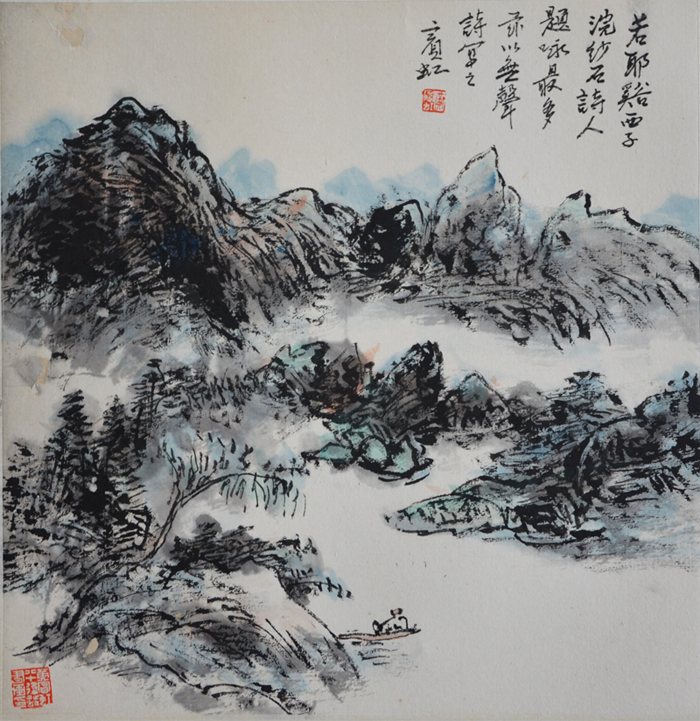 若耶谿西子
浣紗石詩人
題咏最多
茲以無聲
詩寫之
賓虹